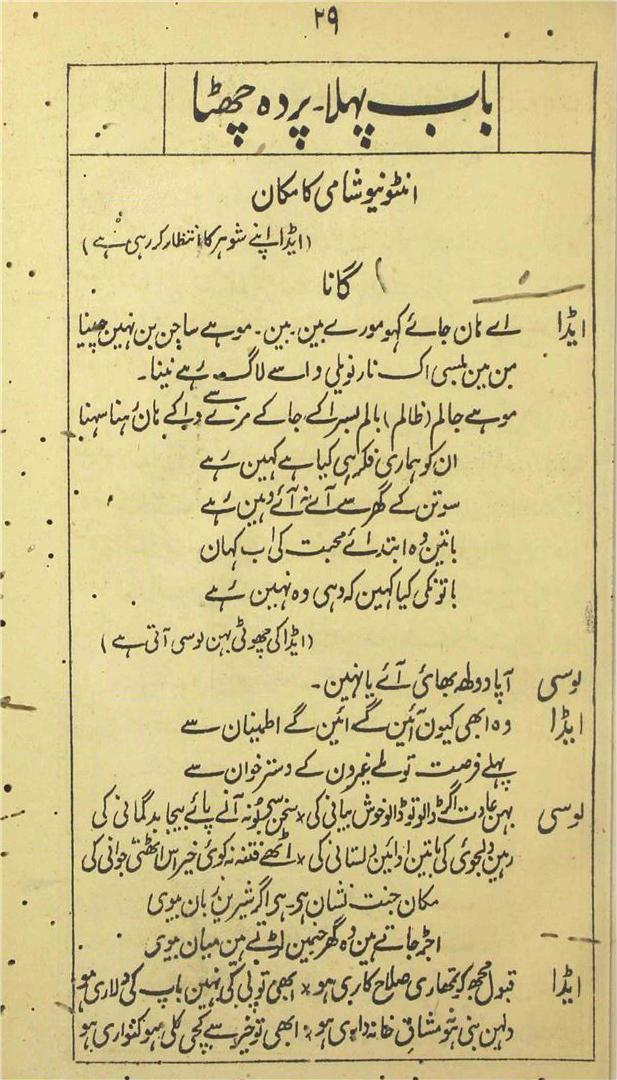 ۲۹
باب پہلا۔ پردہ چھٹا
انٹونیو شامی کا مکان
(ایڈا اپنے شوہر کا انتظار کر رہی ہے)
گانا
ایڈا اے ہان جائے کہو مورے بین۔ بین۔ موہے ساجن بن نہین چینا
من مین بسی اک نار نویلی وا سے لاگ رہے نینا۔
موہے جالم (ظالم) بالم بسرا کے، جا کے مزے سے وا کے ہان رہنا سہنا
ان کو ہماری فکر ہی کیا ہے کہین رہے
سوتن کے گھر سے آئے نہ آئے وہین رہے
باتین وہ ابتدائے محبت کی اب کہان
باتونکی کیا کہین کہ وہی وہ نہین رہے
(ایڈا کی چھوٹی بہن لوسی آتی ہے)
لوسی آپا دولھ بھائی آئے یا نہین۔
ایڈا وہ ابھی کیون آئین گے ائین گے اطمینان سے
پہلے فرصت تو ملے غیرون کے دستر خوان سے
لوسی بہن عادت اگر ڈالو تو ڈالو خوش بیانی کی × سخن سے بو نہ آنے پائے بیجا بدگمانی کی
رہین دلجوئی کی باتین ادائین دلستانی کی × اٹھے فتنہ نہ کوئی خیر اس اٹھتی جوانی کی
مکان جنت نشان ہو۔ ہو اگر شیرین زبان بیوی
اجڑ جاتے ہین وہ گھر جنمین لڑتے ہین میان بیوی
ایڈا قبول مجھ کو تمھاری صلاح کاری ہو × ابھی تو پی کی نہین باپ کی دلاری ہو
دلہن بنی نہ ہو مشاق خانہ داری ہو × ابھی تو خیر سے کچی کلی ہو کنواری ہو